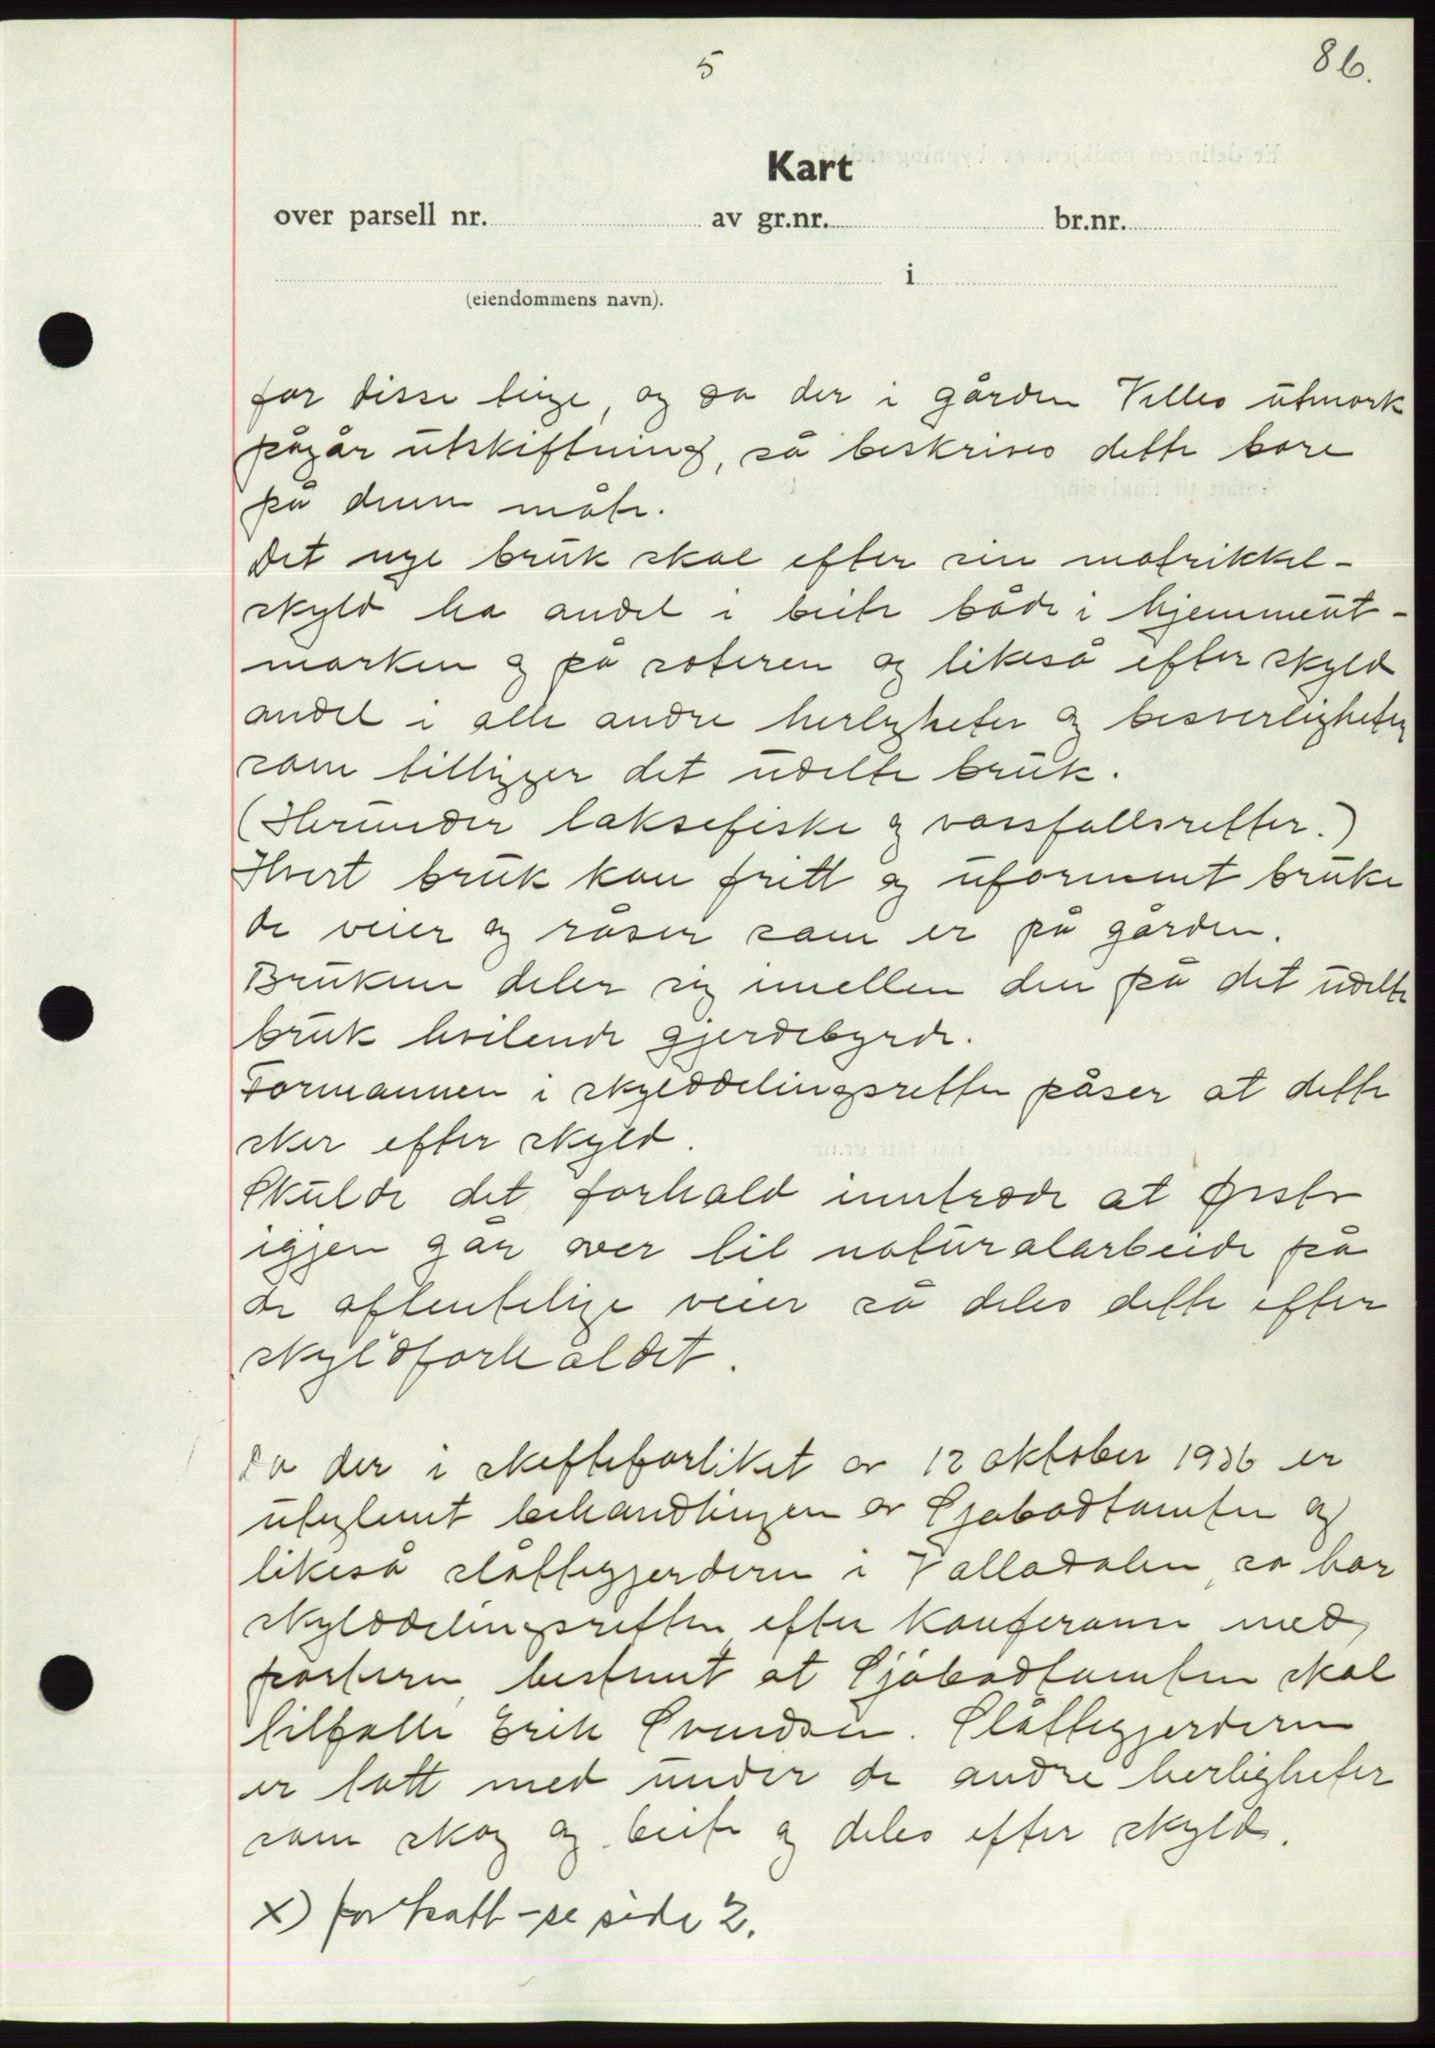 5
86.
Kart
over parsell nr. av gr.nr. br.nr.
i
(eiendommens navn).
for disse teige, og da der i gården Velles utmark
pågår utskiftning, så beskrives dette bare
på denne måte.
Det nye bruk skal efter sin matrikkel-
skyld ha andel i beite både i hjemmeut-
marken og på seteren og likeså efter skyld
andel i alle andre herligheter og besverligheter
som tilligger det udelte bruk.
(Herunder laksefiske og vassfallsretter.)
Hvert bruk kan fritt og uforment bruke
de veier og råser som er på gården.
Brukene deler sig imellen den på det udelte
bruk hvilende gjerdebyrde.
Formannen i skylddelingsretten påser at dette
sker efter skyld.
Skulde det forhold inntrede at Ørsta
igjen går over til naturalarbeide på
de offentelige veier så deles dette efter
skyldforholdet.
Da der i skifteforliket av 12 oktober 1936 er
uteglemt behandlingen av Sjøbodtomten og
likeså slåttegjerdene i Valladalen, så har
skylddelingsretten, efter konferanse med
partene, bestemt at Sjøbodtomten skal
tilfalle Erik Svendsen. Slåttegjerdene
er tatt med under de andre herligheter
som skog og beite og deles efter skyld.
x) fortsatt - se side 2.